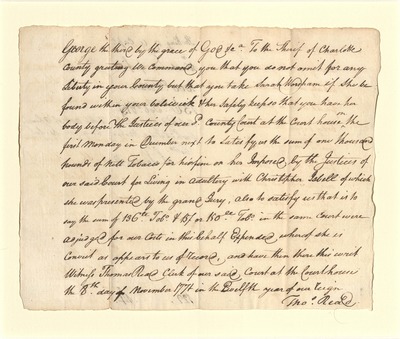 George the third by the grace of God &c.a To the Sherif of Charlotte
County greeting We Command you that you do not omit for any
liberty in your County but that you take Sarah Wordham if She be
found within your Baliwick & her Safely keep so that you have her
body before the Justices of our s.d County Court at the Court house on the
first Monday in December next to Satisfy us the sum of one thousand
pounds of Nett Tobacco for hir fine on her Imposed, by the Justices of
our said Court for Living in adultery with Christopher Isbell of which
she was presented by the grand Jury, also to satisfy us that is to
say the sum of 136 Tob.o & 15/ or 150 Tob.o in the same Court were
adjudged for our Costs in this behalf Expended whereof she is
Convict as appears to us of record, and have then there this writ
Witness Thomas Read Clerk of our said Court at the Courthouse
the 8th day of November 1774 in the Twelfth year of our reign
Tho.s Read